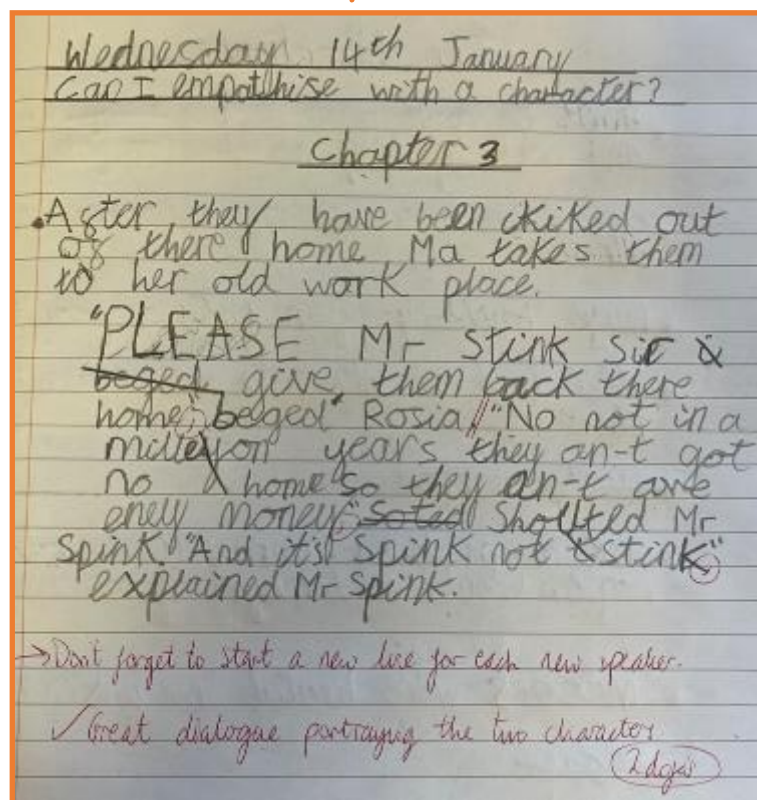 Wednesday 14th January
Can I empathise with a character?
Chapter 3
After they have been kiked out
of there home Ma takes them
to her old work place.
"PLEASE Mr stink sir
beged give them back there
home" beged Rosia // "No not in a
milleyon years they an-t got
no home so they an-t ave
eney money" Soted Shoutted Mr
Spink. "And it's Spink not stink"
explained Mr Spink.
→ Don't forget to start a new line for each new speaker.
✓ Great dialogue portraying the two characters